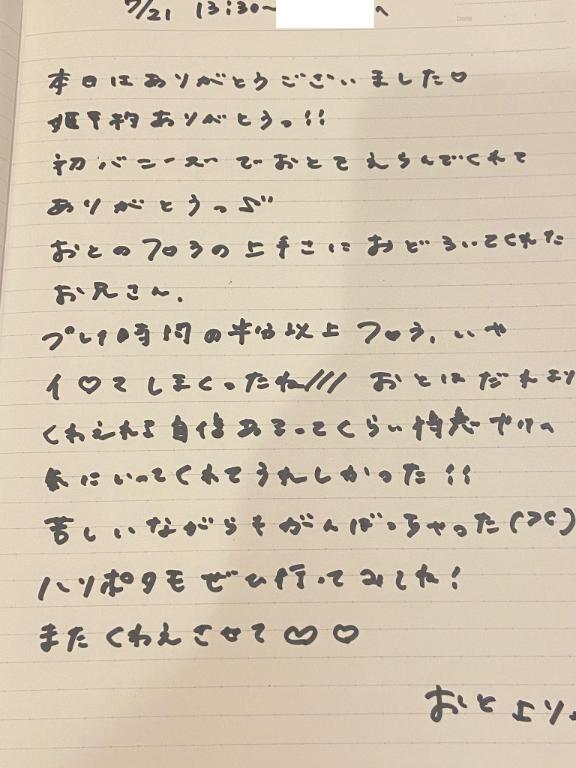 7/21 13:30〜 へ
本日はありがとうございました♡
姫予約ありがとうっ!!
初バニースーでおとてえらんでくれて
ありがとうっ
おとのフ♡うの上手さにおどろいてくれた
お兄さん.
プレイ時間の半分以上フ♡う.いや
イ♡てしまくったね/// おとはだれより
くわえれる自信あるってくらい得意
気にいってくれてうれしかった!!
苦しいながらそがんばっちゃった(><)
ハリポタもぜひ行ってみしね!
またくわえさせて♡♡
おとより.